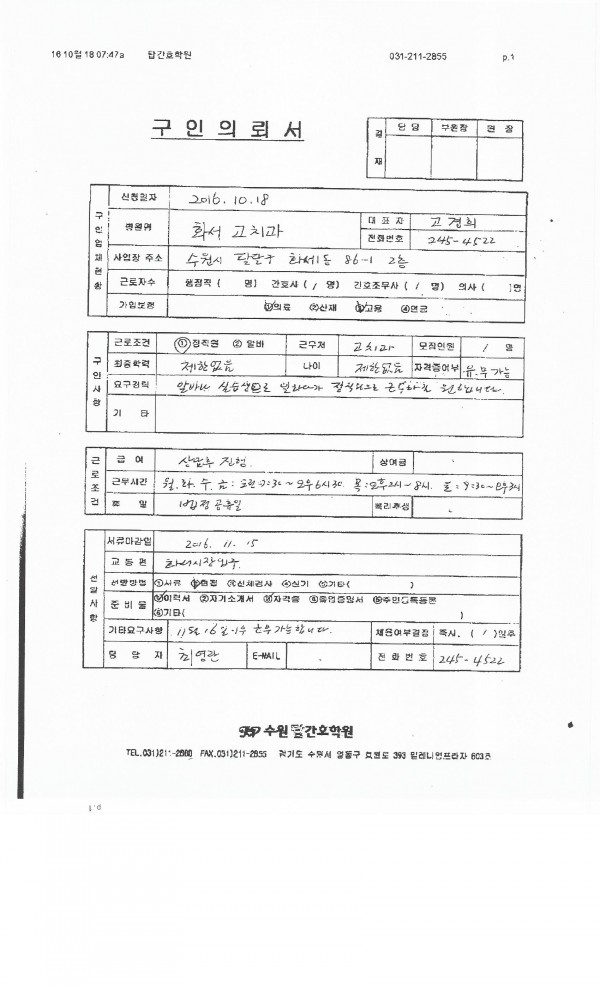 16 10월 18 07:47a 탑간호학원 031-211-2855 p.1
구 인 의 뢰 서
결재 담 당 부원장 원 장
구인업체현황
신청일자 2016. 10. 18
병원명 화서 고치과 대 표 자 고경희
전화번호 245-4522
사업장 주소 수원시 팔달구 화서1동 86-1 2층
근로자수 행정직 ( 명) 간호사 ( / 명) 간호조무사 ( / 명) 의사 ( )명
가입보험 ①의료 ②산재 ③고용 ④연금
구인사항
근로조건 ① 정직원 ② 알바 근무처 고치과 모집인원 / 명
최종학력 제한없음 나이 제한없음 자격증여부 유.무 가능
요구경력
기 타
근로조건
급 여 상담후 진행. 상여금
근무시간 월. 화. 수. 금 : 오전 9:30 ~ 오후 6시30. 목 : 오후2시~8시. 토 : 9:30~오후3시
휴 일 법정 공휴일 복리후생
선발사항
서류마감일 2016. 11. 15
교 통 편 화서시장입구
선발방법 ①서류 ②면접 ③신체검사 ④실기 ⑤기타( )
준 비 물 ①이력서 ②자기소개서 ③자격증 ④졸업증명서 ⑤주민등록등본
⑥기타( )
기타요구사항 11월 16일이후 근무가능합니다. 채용여부결정 즉시. ( / )일후
담 당 자 최영란 E-MAIL 전 화 번 호 245-4522
TOP 수원탑간호학원
TEL.031)211-2880 FAX.031)211-2855 경기도 수원시 영통구 효원로 393 밀레니엄프라자 603호
p.1